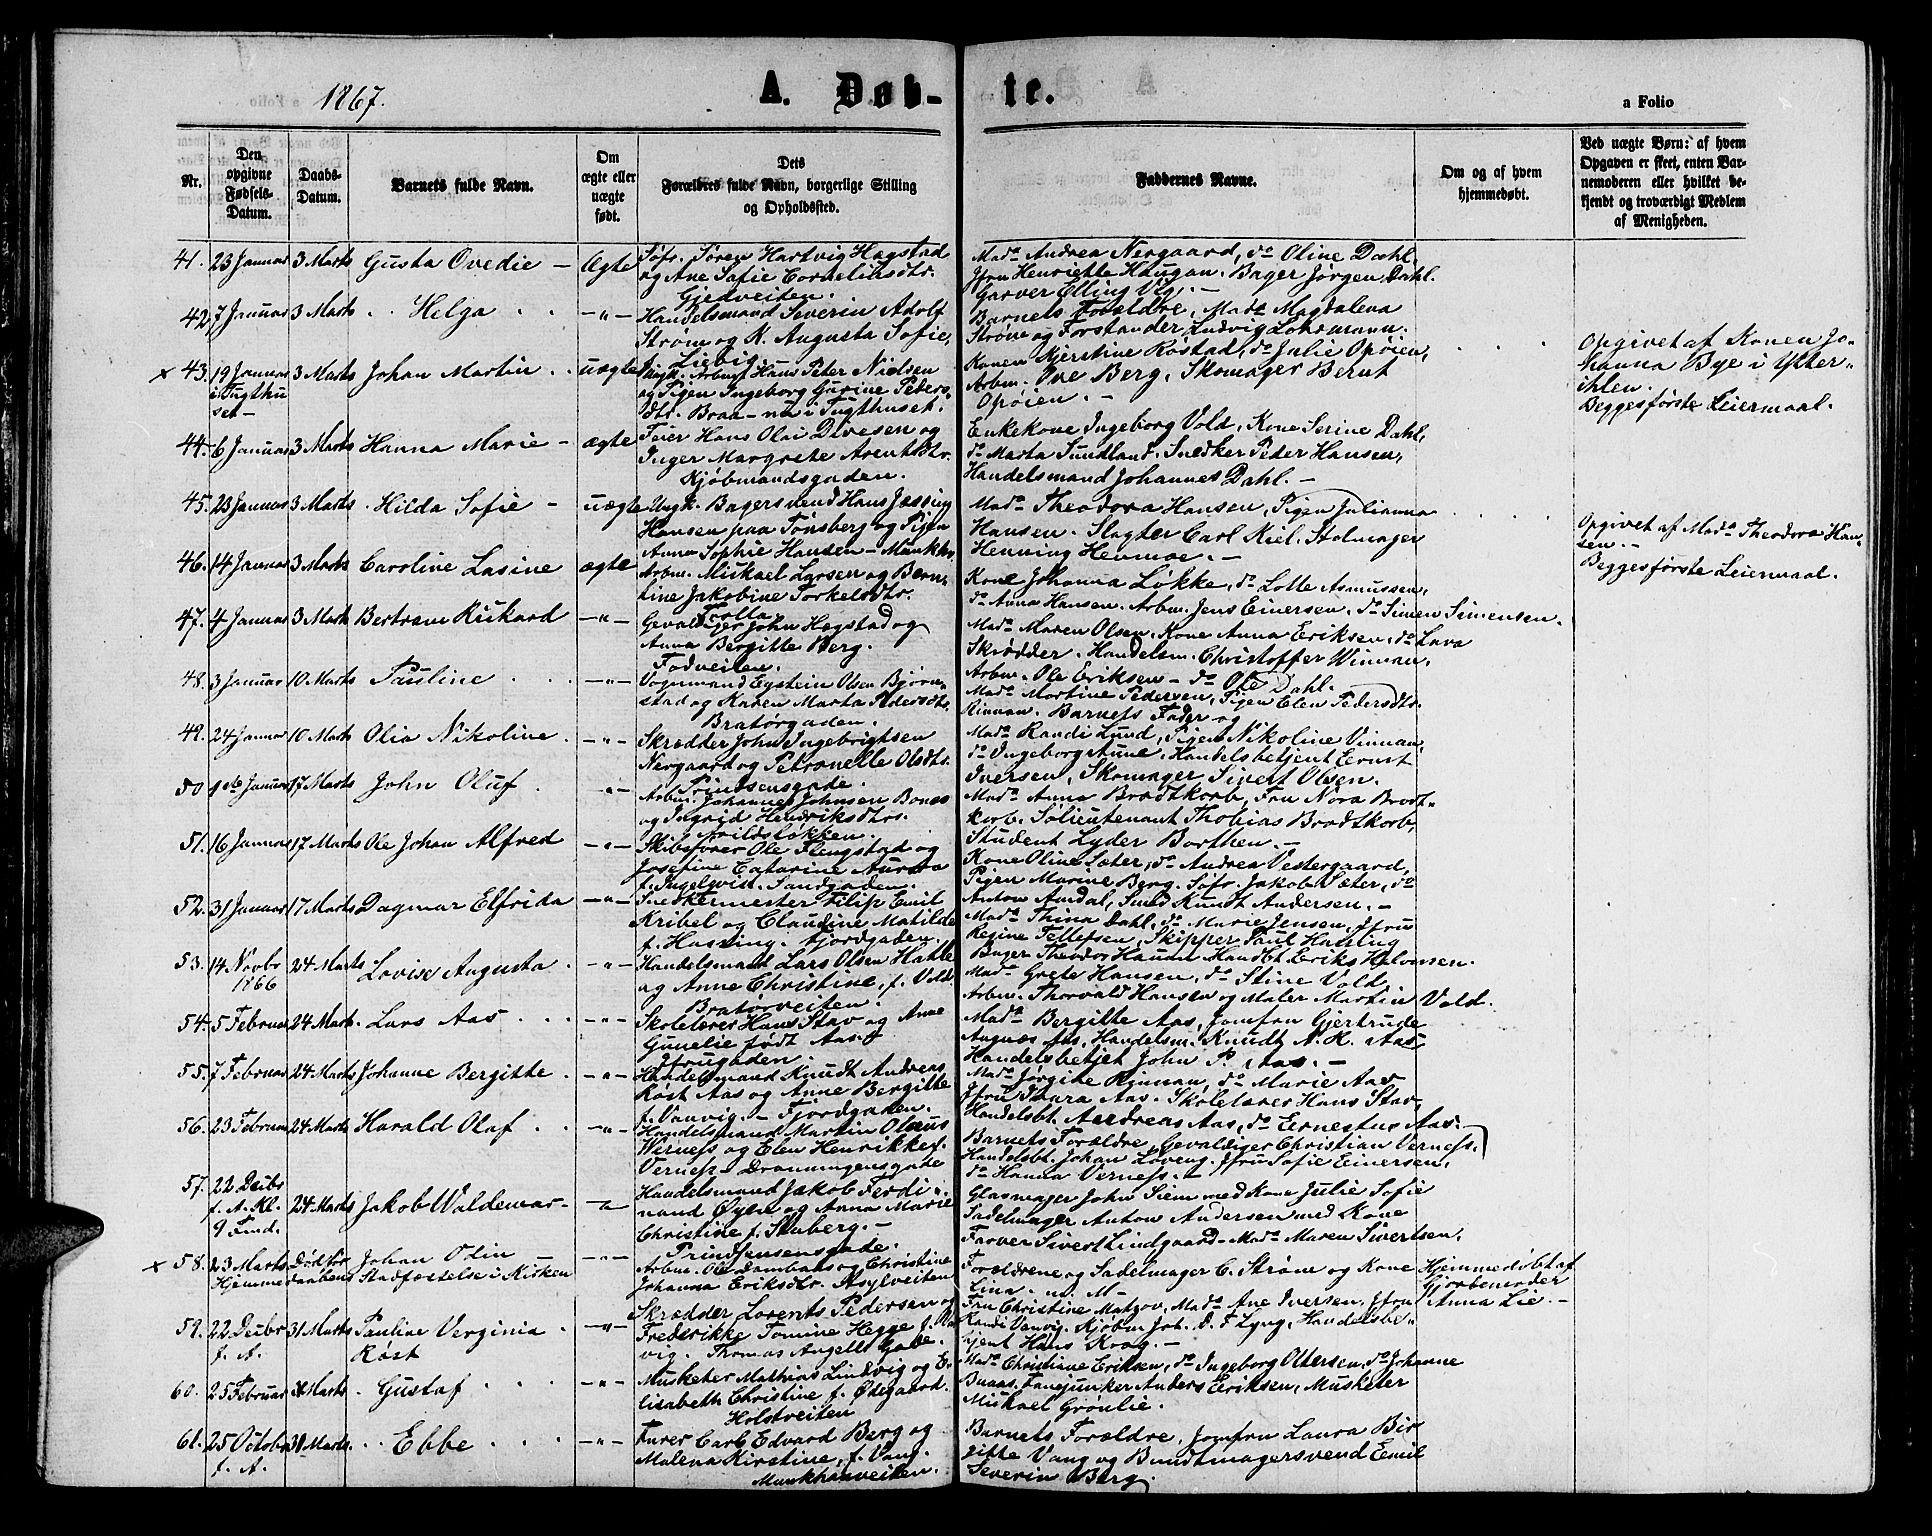 1867.
A. Døb-
te.
a Folio
Nr.
Den opgivne Fødsels-Datum.
Daabs-Datum.
Barnets fulde Navn.
Om ægte eller uægte født.
Dets Forældres fulde Navn, borgerlige Stilling og Opholdssted.
Faddernes Navne.
Om og af hvem hjemmedøbt.
Ved uægte Børn: af hvem Opgaven er skeet, enten Barnemoderen eller hvilket bekjendt og troværdigt Medlem af Menigheden.
41. 23 Januar 3 Marts Gusta Ovedie - Ægte
Søfr. Søren Hartvig Hagstad
og Ane Sofie Corneliusdtr.
Gjedveiten.
Mad. Andrea Nergaard, do Oline Dahl,
Jfru Henriette Haugan. Bager Jørgen Dahl.
Garver Elling Vig. -
42 7 Januar 3 Marts Helga - " -
Handelsmand Severin Adolf
Strøm og K. Augusta Sofie,
Liebig.
Barnets Forældre, Mad. Magdalena
Strøne og Forstander Ludvig Lohrmann.
x 43. 19 Januar i Tugthuset - 3 Marts Johan Martin uægte
Ungk. Arbm. Hans Peter Nielsen
og Pigen Ingeborg Gurine Peders-
dtr. Braa - nu i Tugthuset.
Konen Kjerstine Røstad, do Julie Opøien,
Arbm. Ove Berg, Skomager Bernt
Opøien. -
Opgivet af Konen Jo-
hanna Bye i Ytter-
ihlen.
Begges første Leiermaal.
44. 6 Januar 3 Marts Hanna Marie - ægte
Feier Hans Olai Divesen og
Inger Margrete Arentsdtr.
Kjøbmandsgaden.
Enkekone Ingeborg Vold, Kone Serine Dahl,
do Marta Sundland. Snedker Peder Hansen,
Handelsmand Johannes Dahl. -
45. 23 Januar 3 Marts Hilda Sofie - uægte
Ungk. Bagersvend Hans Jessing
Hansen paa Tønsberg og Pigen
Anna Sophie Hansen - Munkh.
Mad. Theodora Hansen, Pigen Julianna
Hansen. Slagter Carl Kiel. Stolmager
Henning Henmoe. -
Opgivet af Mad. Theodora Han-
sen. -
Begges første Leiermaal.
46. 14 Januar 3 Marts Caroline Lasine ægte
Arbm. Mickael Larsen og Bern-
tine Jakobine Torkelsdtr.
Trolla
Kone Johanna Løkke, do Lotte Asmussen,
do Anna Hansen. Arbm. Jens Einersen, do Simen Simensen.
47. 4 Januar 3 Marts Bertram Rickard - " -
Gevaldiger John Hegstad og
Anna Bergitte Berg.
Fodveiten.
Mad. Maren Olsen, Kone Anna Eriksen, do Lava
Skrødder. Handelsm. Christoffer Winnan,
Arbm. Ole Eriksen - do Ole Dahl.
48. 3 Januar 10 Marts Pauline - " -
Vognmand Eystein Olsen Bjørn-
stad og Karen Marta Pedersdtr.
Bratørgaden.
Mad. Martine Pedersen, Pigen Elen Pedersdtr.
Rinnan. Barnets Fader og
49. 24 Januar 10 Marts Olia Nikoline - " -
Skrædder John Ingebrigtsen
Nergaard og Petronelle Olsdtr.
Prindsensgade.
Mad. Randi Lund, Pigen Nikoline Vinnan,
do Ingeborg Aune, Handelsbetjent Ernst
Iversen, Skomager Sivert Olsen.
50 1ste Januar 17 Marts John Oluf - " -
Arbm. Johannes Johnsen Bones
og Ingrid Hendriksdtr.
Arildsløkken.
Mad. Anna Brodtkorb, Fru Nora Brodt-
korb. Sølieutenant Thobias Brodtkorb,
Student Lyder Borthen. -
51. 16 Januar 17 Marts Ole Johan Alfred - " -
Skibsfører Ole Flengstad og
Josefine Catarine Aurora
f. Ingelqvist. Sandgaden.
Kone Oline Sæter, do Andrea Vestergaard,
Pigen Marine Berg. Søfr. Jakob Sæter, do
Anton Aundal, Smed Knudt Andersen. -
52. 31 Januar 17 Marts Dagmar Elfrida - " -
Snedkermester Filip Emil
Kribel og Claudine Matilde
f. Hassing. Fjordgaden.
Mad. Thina Dahl, do Marie Jensen, Jfru
Regine Tellefsen, Skipper Paul Hassing
Bager Theodor Hauan Handbt. Eriks Halvorsen.
53. 14 Novbr 1866 24 Marts Lovise Augusta - " -
Handelsmand Lars Olsen Hatle
og Anne Christine, f. Vold.
Bratørveiten.
Mad. Grete Hansen, do Stine Vold
Arbm. Thorvald Hansen og Maler Martin Vold.
54. 5 Februar 24 Marts Lars Aas - " -
Skolelærer Hans Stav og Anne
Gunelie født Aas.
Jfrugaden.
Mad. Bergitte Aas, Jomfru Gjertrude
Augnæs Aas, Handelsm. Knudt N. K. Aas
Handelsbetjet John P. Aas. -
55. 7 Februar 24 Marts Johanne Bergitte - " -
Handelsmand Knudt Andreas
Rost Aas og Anne Bergitte
f. Vanvig. - Fjordgaden.
Mad. Jørgine Rinnan, do Marie Aas
Jfru Thara Aas. Skolelærer Hans Stav,
Handelsbt. Andreas Aas, do Ernestus Aas.
56. 23 Februar 24 Marts Harald Olaf - " -
Handelsmand Martin Olaus
Werness og Elen Henrikke f.
Verness - Dronningensgade
Barnets Forældre, Gevaldiger Christian Verness.
Handelsbt. Johan Løveng. Jfru Sofie Einersen,
do Hanna Verness. -
57. 22 Decbr f. A. Kl. 9 Fmd. 24 Marts Jakob Waldemar - " -
Handelsmand Jakob Ferdi-
nand Øyen og Anna Marie
Christine f. Staberg. -
Prindsensgade.
Glasmager John Siem med Kone Julie Sofie
Sadelmager Anton Andersen med Kone
Farver Sivert Lindgaard - Mad. Maren Sivertsen,
x 58. 23 Marts Hjemme Død før Daaben Johan Odin Stadfæstelse i Kirken - " -
Arbm. Ole Dambaas og Christine
Johanna Eriksdtr. Asylveiten
Forældrene og Sadelmager C. Strøm og Kone
Lina
Hjemmedøbt af
Gjordemoder
Anna Lie. -
59. 22 Decbr f. A. 31 Marts Pauline Verginia Røst - " -
Skrædder Lorents Pedersen og
Fredrikke Tomine Hegge f. Van-
vig. Thomas Angells Gade.
Fru Christine Matzov, Mad. Ane Iversen. Jfru
Randi Vanvig. Kjøbm. Joh. D. F. Lyng, Handelsbe-
tjent Hans Krog. -
60. 25 Februar 31 Marts Gustaf - " -
Musketer Mathias Lindvig og E-
lisabeth Christine f. Ødegaard.
Holstveiten
Mad. Christiane Eriksen, do Ingeborg Ottersen, do Johanne
Buaas. Fanejunker Anders Eriksen, Musketer
Mickael Grønlie.
61. 25 Octobr f. A. 31 Marts Ebbe - " -
Furer Carl Edvard Berg og
Malena Kirstine, f. Vang.
Munkhaugveiten.
Barnets Forældre, Jomfru Laura Bir-
gitte Vang og Bundtmagersvend Eemil
Severin Berg.